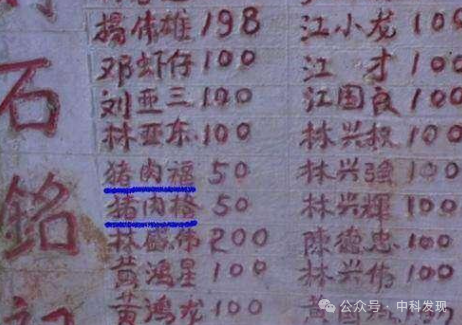 石
銘
伟雄 198 江小龙 100
邓虾仔 100 江才 100
刘亚三 100 江国良 100
林亚东 100 林兴权 100
猪肉福 50 林兴強 100
猪肉 50 林兴輝 100
林盛伟 200 陳德忠 100
黄鸿星 100 林兴伟 100
黄鸿龙 100 黄
公众号·中科发现